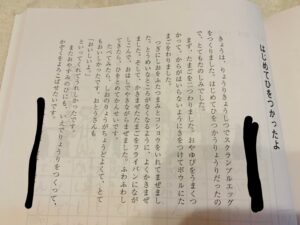 はじめてひをつかったよ
きょうは、りょうりきょうしつでスクランブルエッグ
をつくりました。はじめてひをつかうりょうりだったの
で、とてもたのしみでした。
まず、たまごを二つわりました。おやゆびをうまくつ
かって、からがはいらないようにきをつけてボウルにた
まごをわりました。
つぎにしおをふたつまみとコショウをいれてまぜまし
た。とうめいなところがなくなるように、よくかきまぜ
ました。そして、かきまぜたたまごをフライパンになが
して、おはしでやさしくかきまぜながらまぜました。ふわふわし
てきたら、ひをとめてかんせいです。
たべてみたら、しおのりょうがちょうどよくて、とて
もおいしかったです。おとうさんも
「おいしいよ。」
といってくれてうれしかったです。
またおやすみのひにも、いえでりょうりをつくって、
かぞくをよろこばせたいです。